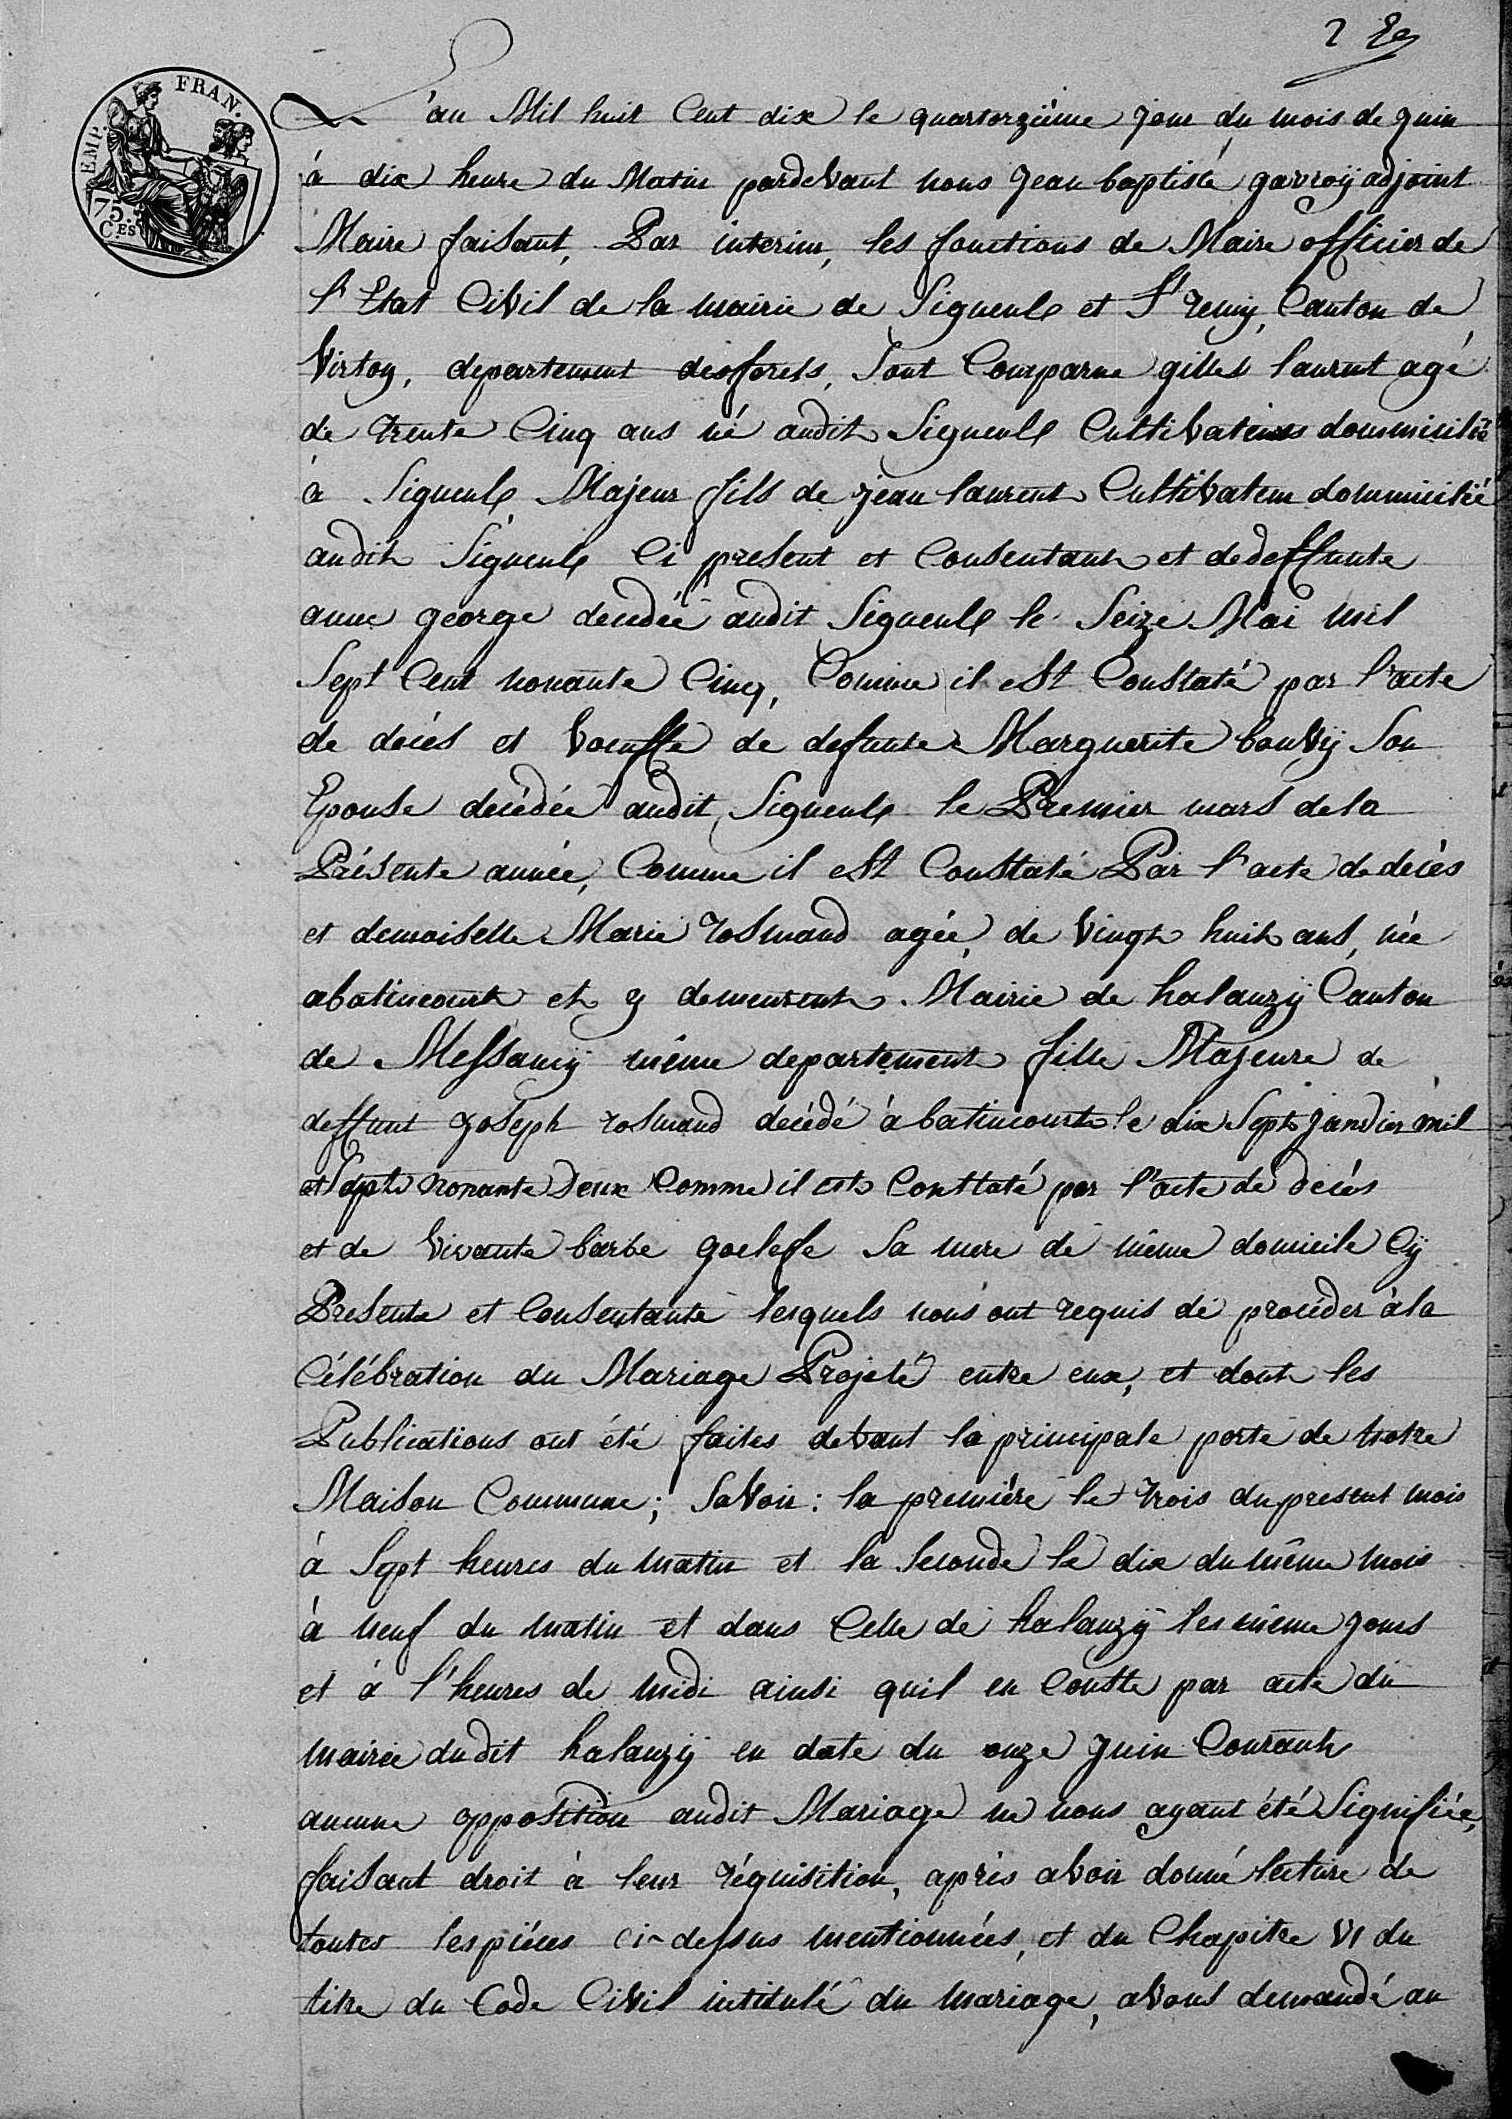 2 
EMP. FRAN.
75.
C.ES
L'an Mil huit Cent dix le quartorzieme jour du mois de juin
à dix heure du Matin pardevant nous jean baptiste gavroÿ adjoint
Maire faisant, Par interim, les fonctions de Maire officier de
l'Etat Civil de la mairie de Signeulx et St remy, Canton de
Virton, departement des forets, Sont Comparue gilles laurent agé
de trente Cinq ans né audit Signeulx Cultivateurs dommicilié
à Signeulx, Majeur fils de jean laurent Cultivateur dommicilié
audit Signeulx Ci present et Consentant et de deffunte
anne george decedée audit Signeulx le Seize Mai mil
Sept Cent nonante Cinq, Comme il est Constaté par l'acte
de décés et Voeuffe de defunte Marguerite bouvÿ Son
Epouse decédée audit Signeulx le Premier mars de la
Présente année, Comme il est Constaté Par l'acte de décès
et demoiselle Marie rosmand agée, de Vingt huit ans, née
abatincourt et y demeurent Mairie de halanzÿ Canton
de Messancÿ même departement fille Majeure de
deffunt joseph rosmand décédé à batincourt le dix Sept janvier mil
et Sept nonante Deux Comme il est Conttaté par l'acte de décés
et de Vivante barbe Sa mere de même domicile Cÿ
Presente et Consentante lesquels nous ont requis de procéder à la
Célébration du Mariage Projeté entre eux, et dont les
Publications ont été faites devant la principale porte de notre
Maison Commune; Savoir: la première le trois du present mois
à Sept heures du matin et la Seconde le dix du même mois
à neuf du matin et dans Celle de halanzÿ les même jours
et à l'heures de midi ainsi quil en Contte par acte du
mairie dudit halanzÿ en date du onze juin Courant
aucune opposition audit Mariage ne nous ayant été Signifiée,
faisant droit à leur réquisition, après avoir donné lecture de
toutes les pièces ci-dessus mentionnées, et du Chapitre VI du
titre du Code Civil intitulé du mariage, avons demandé au